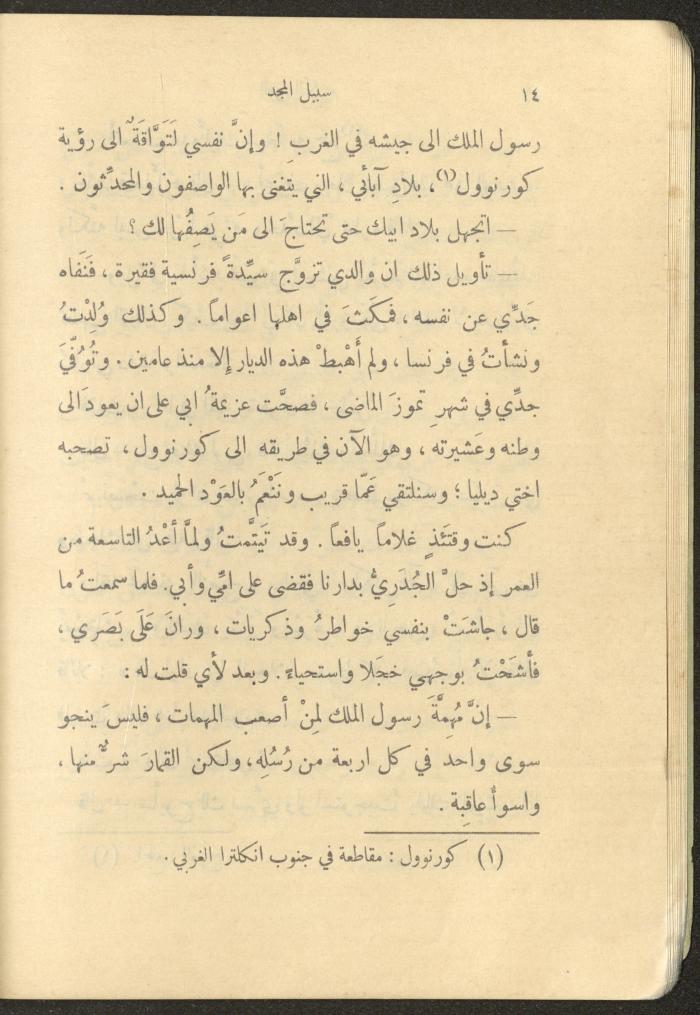 ١٤ سبيل المجد
رسول الملك الى جيشه في الغرب ! وإنَّ نفسي لَتَوَّاقَةٌ الى رؤية
كورنوول(١)، بلادِ آبائي ، التي يتغنى بها الواصفون والمحدِّثون .
— اتجهل بلاد ابيك حتى تحتاجَ الى مَن يَصِفُها لك ؟
— تأويل ذلك ان والدي تزوَّج سيِّدةً فرنسية فقيرة ، فَنَفاه
جَدِّي عن نفسه ، فمكَثَ في اهلها اعواماً . وكذلك وُلِدْتُ
ونشأتُ في فرنسا ، ولم أَهْبطْ هذه الديار إلا منذ عامين . وتُوُفّيَ
جدِّي في شهرِ تموزَ الماضى ، فصحَّت عزيمةُ ابي على ان يعودَ الى
وطنه وعَشيرته ، وهو الآن في طريقه الى كورنوول ، تصحبه
اختي ديليا ؛ وسنلتقي عَمّا قريب ونَنْعَمُ بالعَوْد الحميد .
كنت وقتَئذٍ غلاماً يافعاً . وقد تَيتَّمتُ ولمَّا أعْدُ التاسعة من
العمر إذ حلَّ الجُدَرِيُّ بدارنا فقضى على امِّي وأبي. فلما سمعتُ ما
قال ، جاشَتْ بنفسي خواطرُ وذكريات ، ورانَ عَلَى بَصَري ،
فأشَحْتُ بوجهي خجَلا واستحياءً . وبعد لأي قلت له :
— إنَّ مُهِمَّةَ رسول الملك لمِنْ أصعب المهمات ، فليسَ ينجو
سوى واحد في كل اربعة من رُسُلِه، ولكن القمارَ شرٌّ منها ،
واسوأُ عاقِبة .
(١) كورنوول : مقاطعة في جنوب انكلترا الغربي .